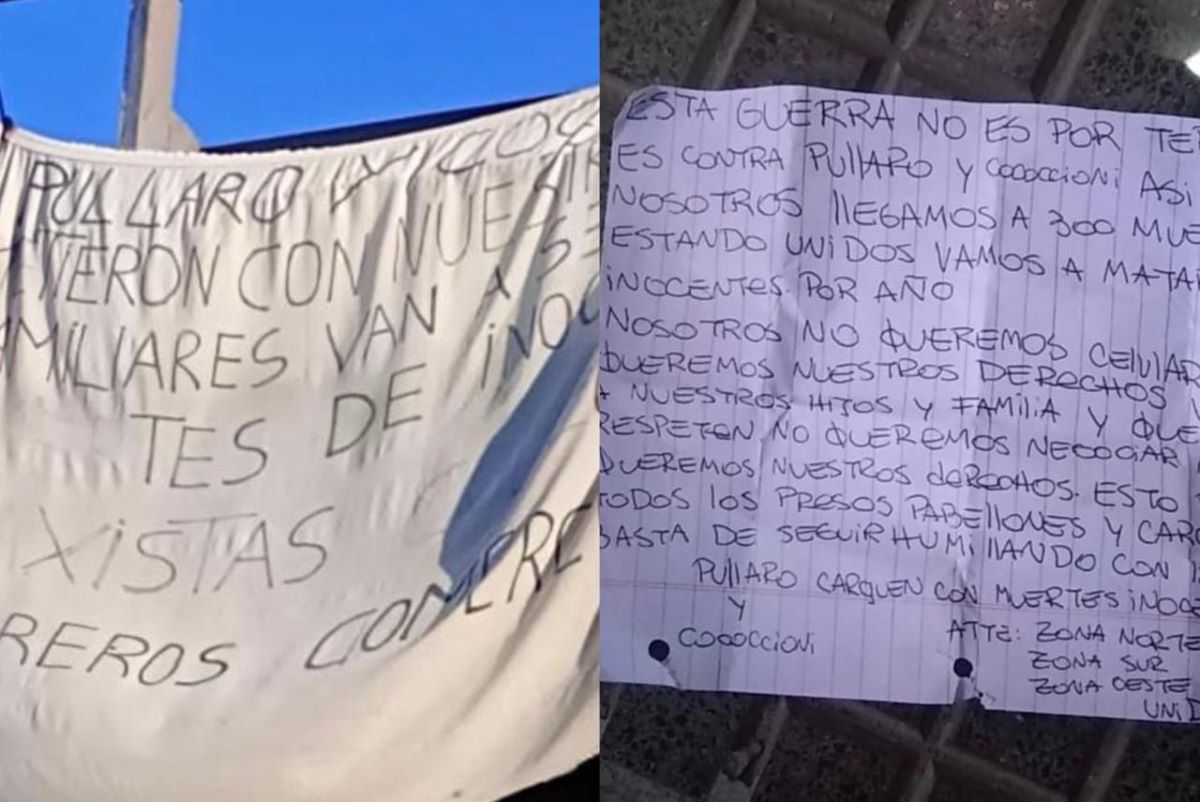 PULLARO Y COC
TIERON CON NUES
AMILIARES VAN A
TES DE INOC
XISTAS
REROS COMERC
ESTA GUERRA NO ES POR TE
ES CONTRA PULLARO Y COCOCCIONI ASI
NOSOTROS LLEGAMOS A 300 MUE
ESTANDO UNIDOS VAMOS A MATA
INOCENTES POR AÑO
NOSOTROS NO QUEREMOS CELULAR
QUEREMOS NUESTROS DERECHOS
A NUESTROS HIJOS Y FAMILIA Y QUE
RESPETEN NO QUEREMOS NEGOCIAR
QUEREMOS NUESTROS DERECHOS. ESTO
TODOS LOS PRESOS PABELLONES Y CARC
BASTA DE SEGUIR HUMILLANDO CON
PULLARO CARGUEN CON MUERTES INOC
Y
COCOCCIONI
ATTE: ZONA NORTE
ZONA SUR
ZONA OESTE
UNID